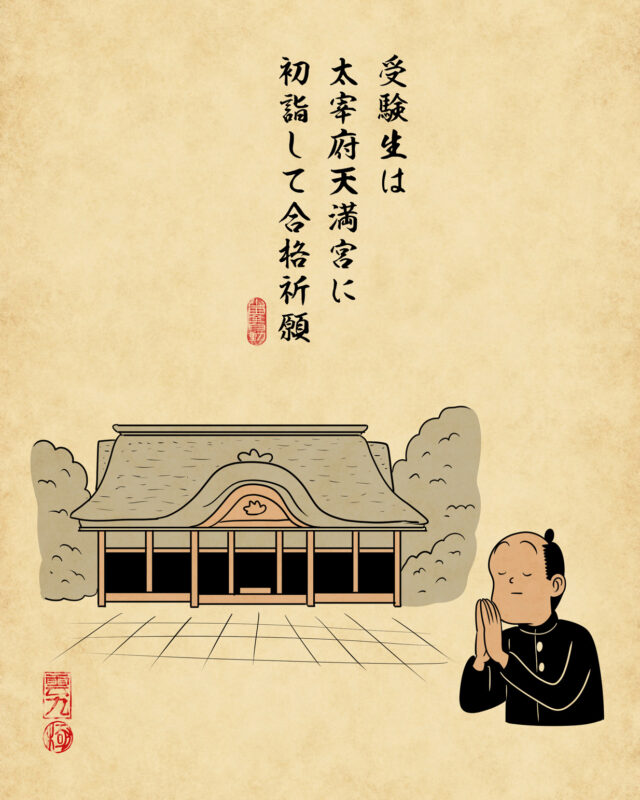 受験生は
太宰府天満宮に
初詣して合格祈願